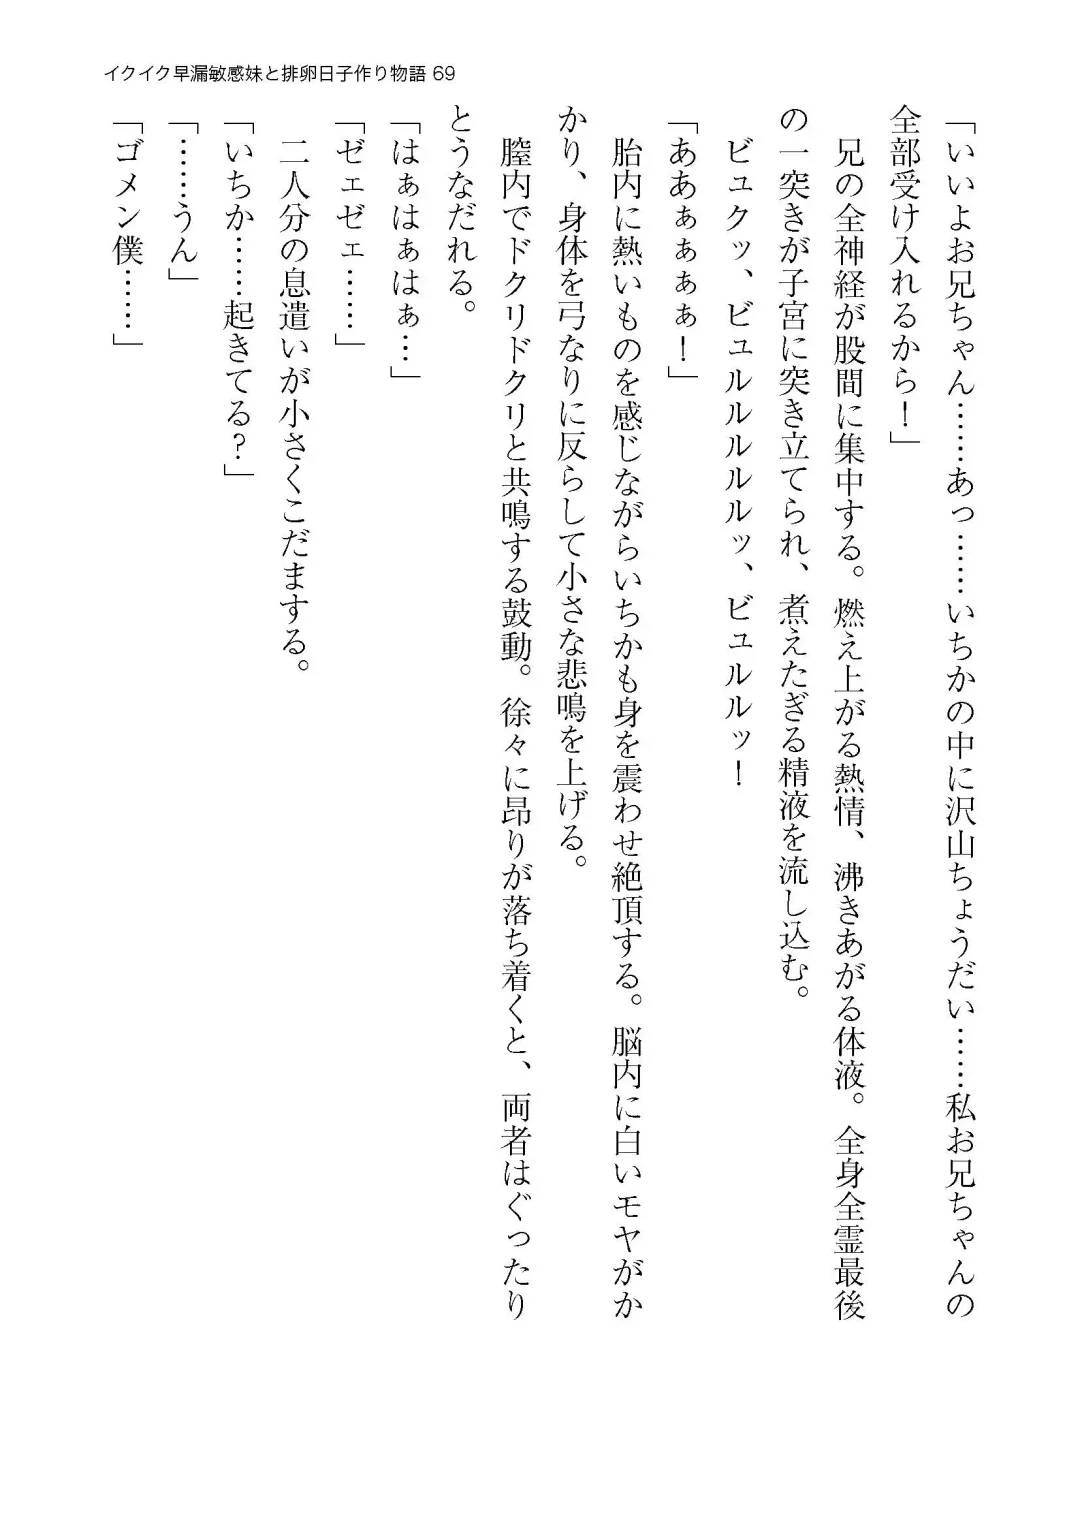 イクイク早漏敏感妹と排卵日子作り物語 69
「いいよお兄ちゃん……あっ……いちかの中に沢山ちょうだい……私お兄ちゃんの
全部受け入れるから！」
　兄の全神経が股間に集中する。燃え上がる熱情、沸きあがる体液。全身全霊最後
の一突きが子宮に突き立てられ、煮えたぎる精液を流し込む。
　ビュクッ、ビュルルルルルッ、ビュルルッ！
「ああぁぁぁぁ！」
　胎内に熱いものを感じながらいちかも身を震わせ絶頂する。脳内に白いモヤがか
かり、身体を弓なりに反らして小さな悲鳴を上げる。
　膣内でドクリドクリと共鳴する鼓動。徐々に昂りが落ち着くと、両者はぐったり
とうなだれる。
「はぁはぁはぁ…」
「ゼェゼェ……」
　二人分の息遣いが小さくこだまする。
「いちか……起きてる？」
「……うん」
「ゴメン僕……」